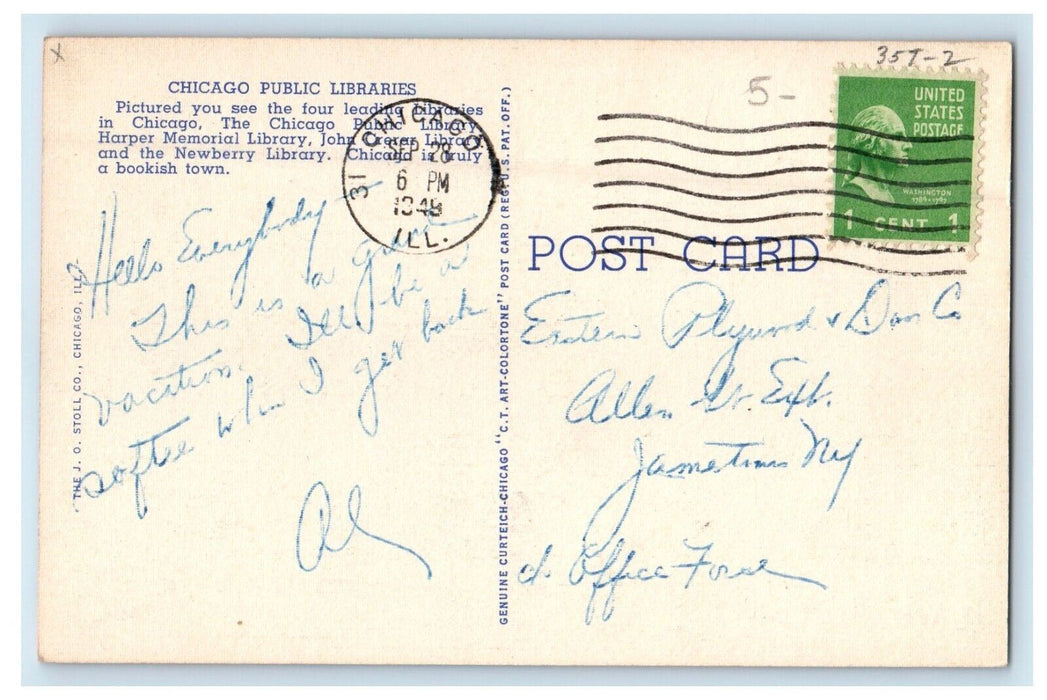 x
35T-2
5-
CHICAGO PUBLIC LIBRARIES
Pictured you see the four leading libraries
in Chicago, The Chicago Public Library,
Harper Memorial Library, John Crerar Library
and the Newberry Library. Chicago is truly
a bookish town.
CHICAGO
31
SEP 28
6 PM
1949
ILL.
UNITED
STATES
POSTAGE
WASHINGTON
1789-1797
1 CENT 1
POST CARD
Hello Everybody
This is a
vacation. I'll be a
softee when I get back
Al
Eastern Plywood & Door Co
Allen St Ext.
Jamestown NY
c/o Office Force
THE J. O. STOLL CO., CHICAGO, ILL.
GENUINE CURTEICH-CHICAGO "C.T. ART-COLORTONE" POST CARD (REG. U.S. PAT. OFF.)